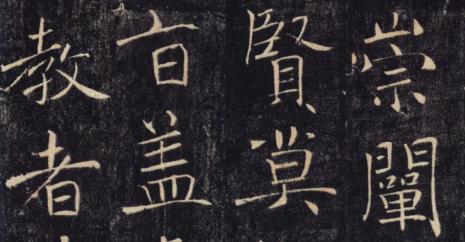 崇闡
賢莫
旨盖
教者